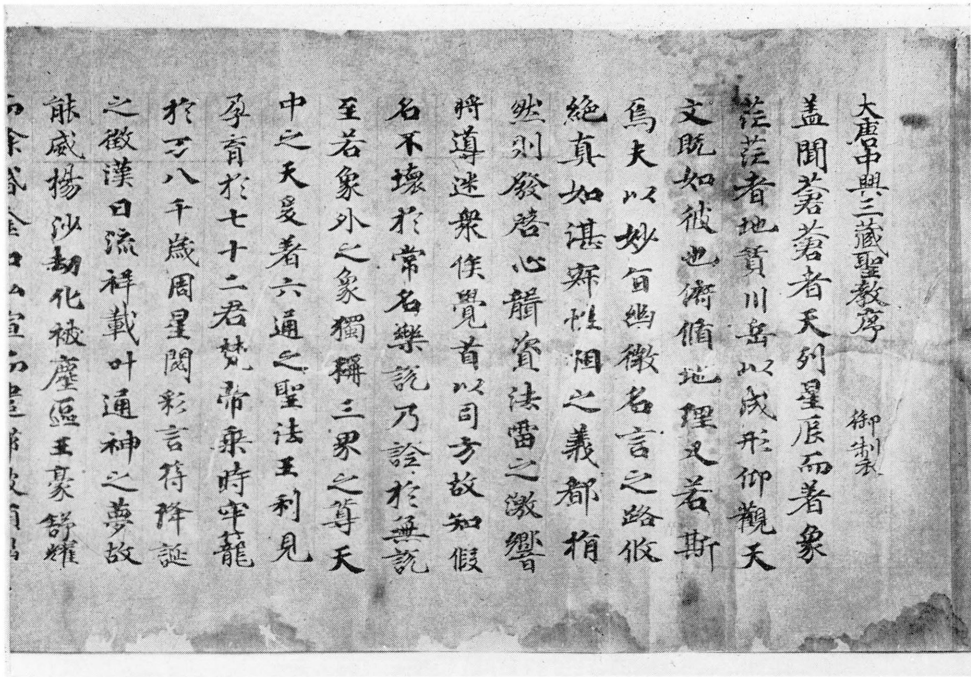 大唐中興三藏聖教序 御製
盖聞蒼蒼者天列星辰而著象
茫茫者地賁川岳以成形仰觀天
文既如彼也俯脩地理又若斯
焉夫以妙旨幽微名言之路攸
絶真如湛寂帷烟之義都捐
然則發啓心韻資法雷之激響
將導迷衆俟覺首以司方故知假
名不壞於常名樂説乃詮於無説
至若象外之象獨稱三界之尊天
中之天爰著六通之聖法王利見
孕育於七十二君梵帝乘時牢蘢
於万八千歲周星閟彩言符降誕
之徴漢日流祥載叶通神之夢故
能威揚沙劫化被塵區王豪舒耀